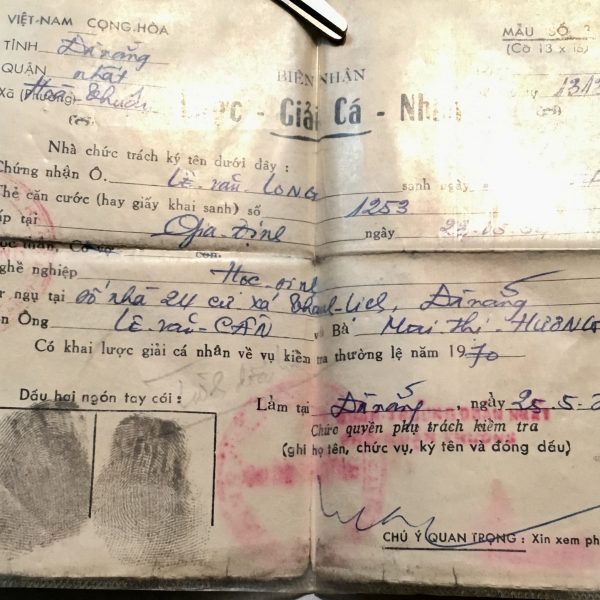 VIỆT-NAM CỘNG.HÒA
MẪU SỐ 2
TỈNH Đà nẵng
(Cỡ 13 x 16)
QUẬN nhất
BIÊN NHẬN
1313
Xã (Phường) Hòa Thuận
Lược - Giải Cá - Nh
Nhà chức trách ký tên dưới đây :
Chứng nhận Ô. LÊ-văn-LONG sanh ngày
Thẻ căn cước (hay giấy khai sanh) số 1253
ấp tại Gia-định ngày 22
con
ghề nghiệp Học-sinh
ngụ tại số nhà 24 cư xá Thanh-lịch, Đà nẵng
n Ông LÊ-văn-CẨN và Bà Mai-thị-HƯƠNG
Có khai lược giải cá nhân về vụ kiểm tra thường lệ năm 1970
Dấu hai ngón tay cái :
Làm tại Đà nẵng, ngày 25-5-
Chức quyền phụ trách kiểm tra
(ghi họ tên, chức vụ, ký tên và đóng dấu)
CHÚ Ý QUAN TRỌNG : Xin xem ph